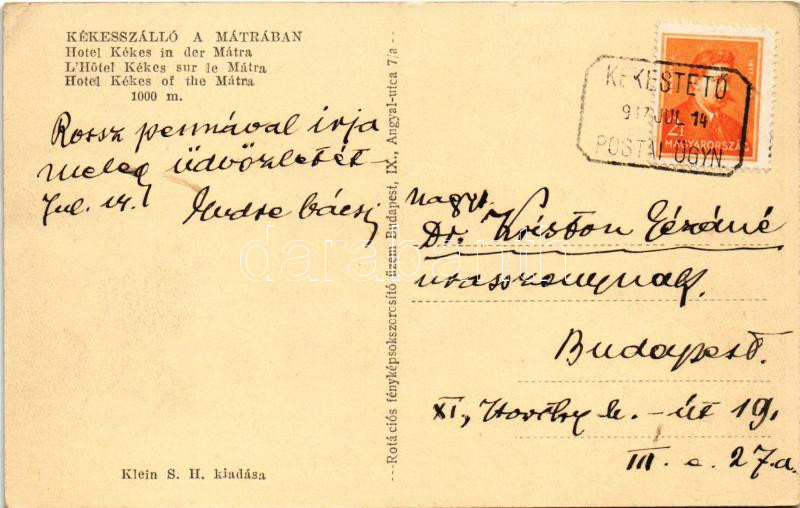 KÉKESSZÁLLÓ A MÁTRÁBAN
Hotel Kékes in der Mátra
L'Hôtel Kékes sur le Mátra
Hotel Kékes of the Mátra
1000 m.
Rossz pennával írja
meleg üdvözletét
Jul. 14. Endre bácsi
Klein S. H. kiadása
Rotációs fényképsokszorosító üzem Budapest, IX., Angyal-utca 7/a
KÉKESTETŐ
937 JUL 14
POSTAI ÜGYN.
MAGYARORSZÁG
darabanth
Nagys.
Dr. Kriston Gézáné
úrasszonynak.
Budapest.
XI, Horthy M. - út 19.
III. e. 27.a.